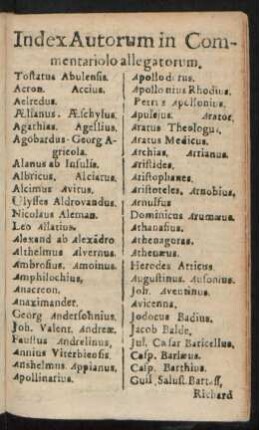 Index Autorum in Com-
mentariolo allegatorum.
Tostatus Abulensis.
Acron. Accius.
Aelredus.
Ælianus. Æschylus.
Agathias. Agellius.
Agobardus. Georg A-
gricola.
Alanus ab Insulis.
Albricus. Alciatus.
Alcimus Avitus.
Ulysses Aldrovandus.
Nicolaus Aleman.
Leo Allatius.
Alexand ab Alexādro
Althelmus Alvernus.
Ambrosius. Amoinus.
Amphilochius.
Anacreon.
Anaximander.
Georg Andersohnius.
Joh. Valent. Andreæ.
Faustus Andrelinus.
Annius Viterbiensis.
Anshelmus Appianus.
Apollinarius.
Apollodorus.
Apollonius Rhodius.
Petrus Apollonius.
Apulejus. Arator.
Aratus Theologus.
Aratus Medicus.
Archias. Arrianus.
Aristides.
Aristophanes.
Aristoteles. Arnobius.
Arnulfus
Dominicus Arumæus.
Athanasius.
Athenagoras.
Athenæus.
Herodes Atticus
Augustinus. Ausonius.
Joh. Aventinus.
Avicenna.
Jodocus Badius.
Jacob Balde.
Jul. Cæsar Baricellus.
Casp. Barlæus.
Casp. Barthius.
Guil. Salust. Bartass,
Richard